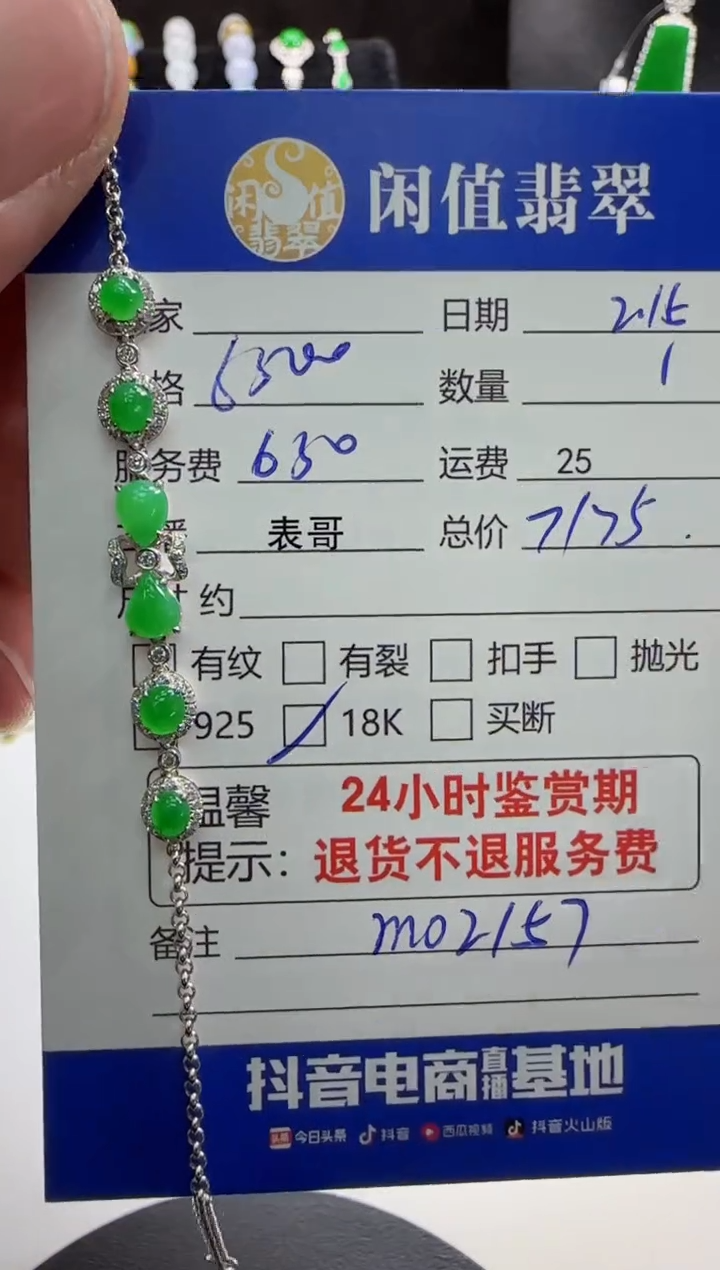 闲值翡翠
闲值翡翠
家 日期 2.15
格 6500 数量 1
服务费 650 运费 25
播 表哥 总价 7175.
约
有纹 有裂 扣手 抛光
925 18K 买断
温馨 24小时鉴赏期
提示: 退货不退服务费
备注 m02157
抖音电商直播基地
头条 今日头条 抖音 西瓜视频 抖音火山版